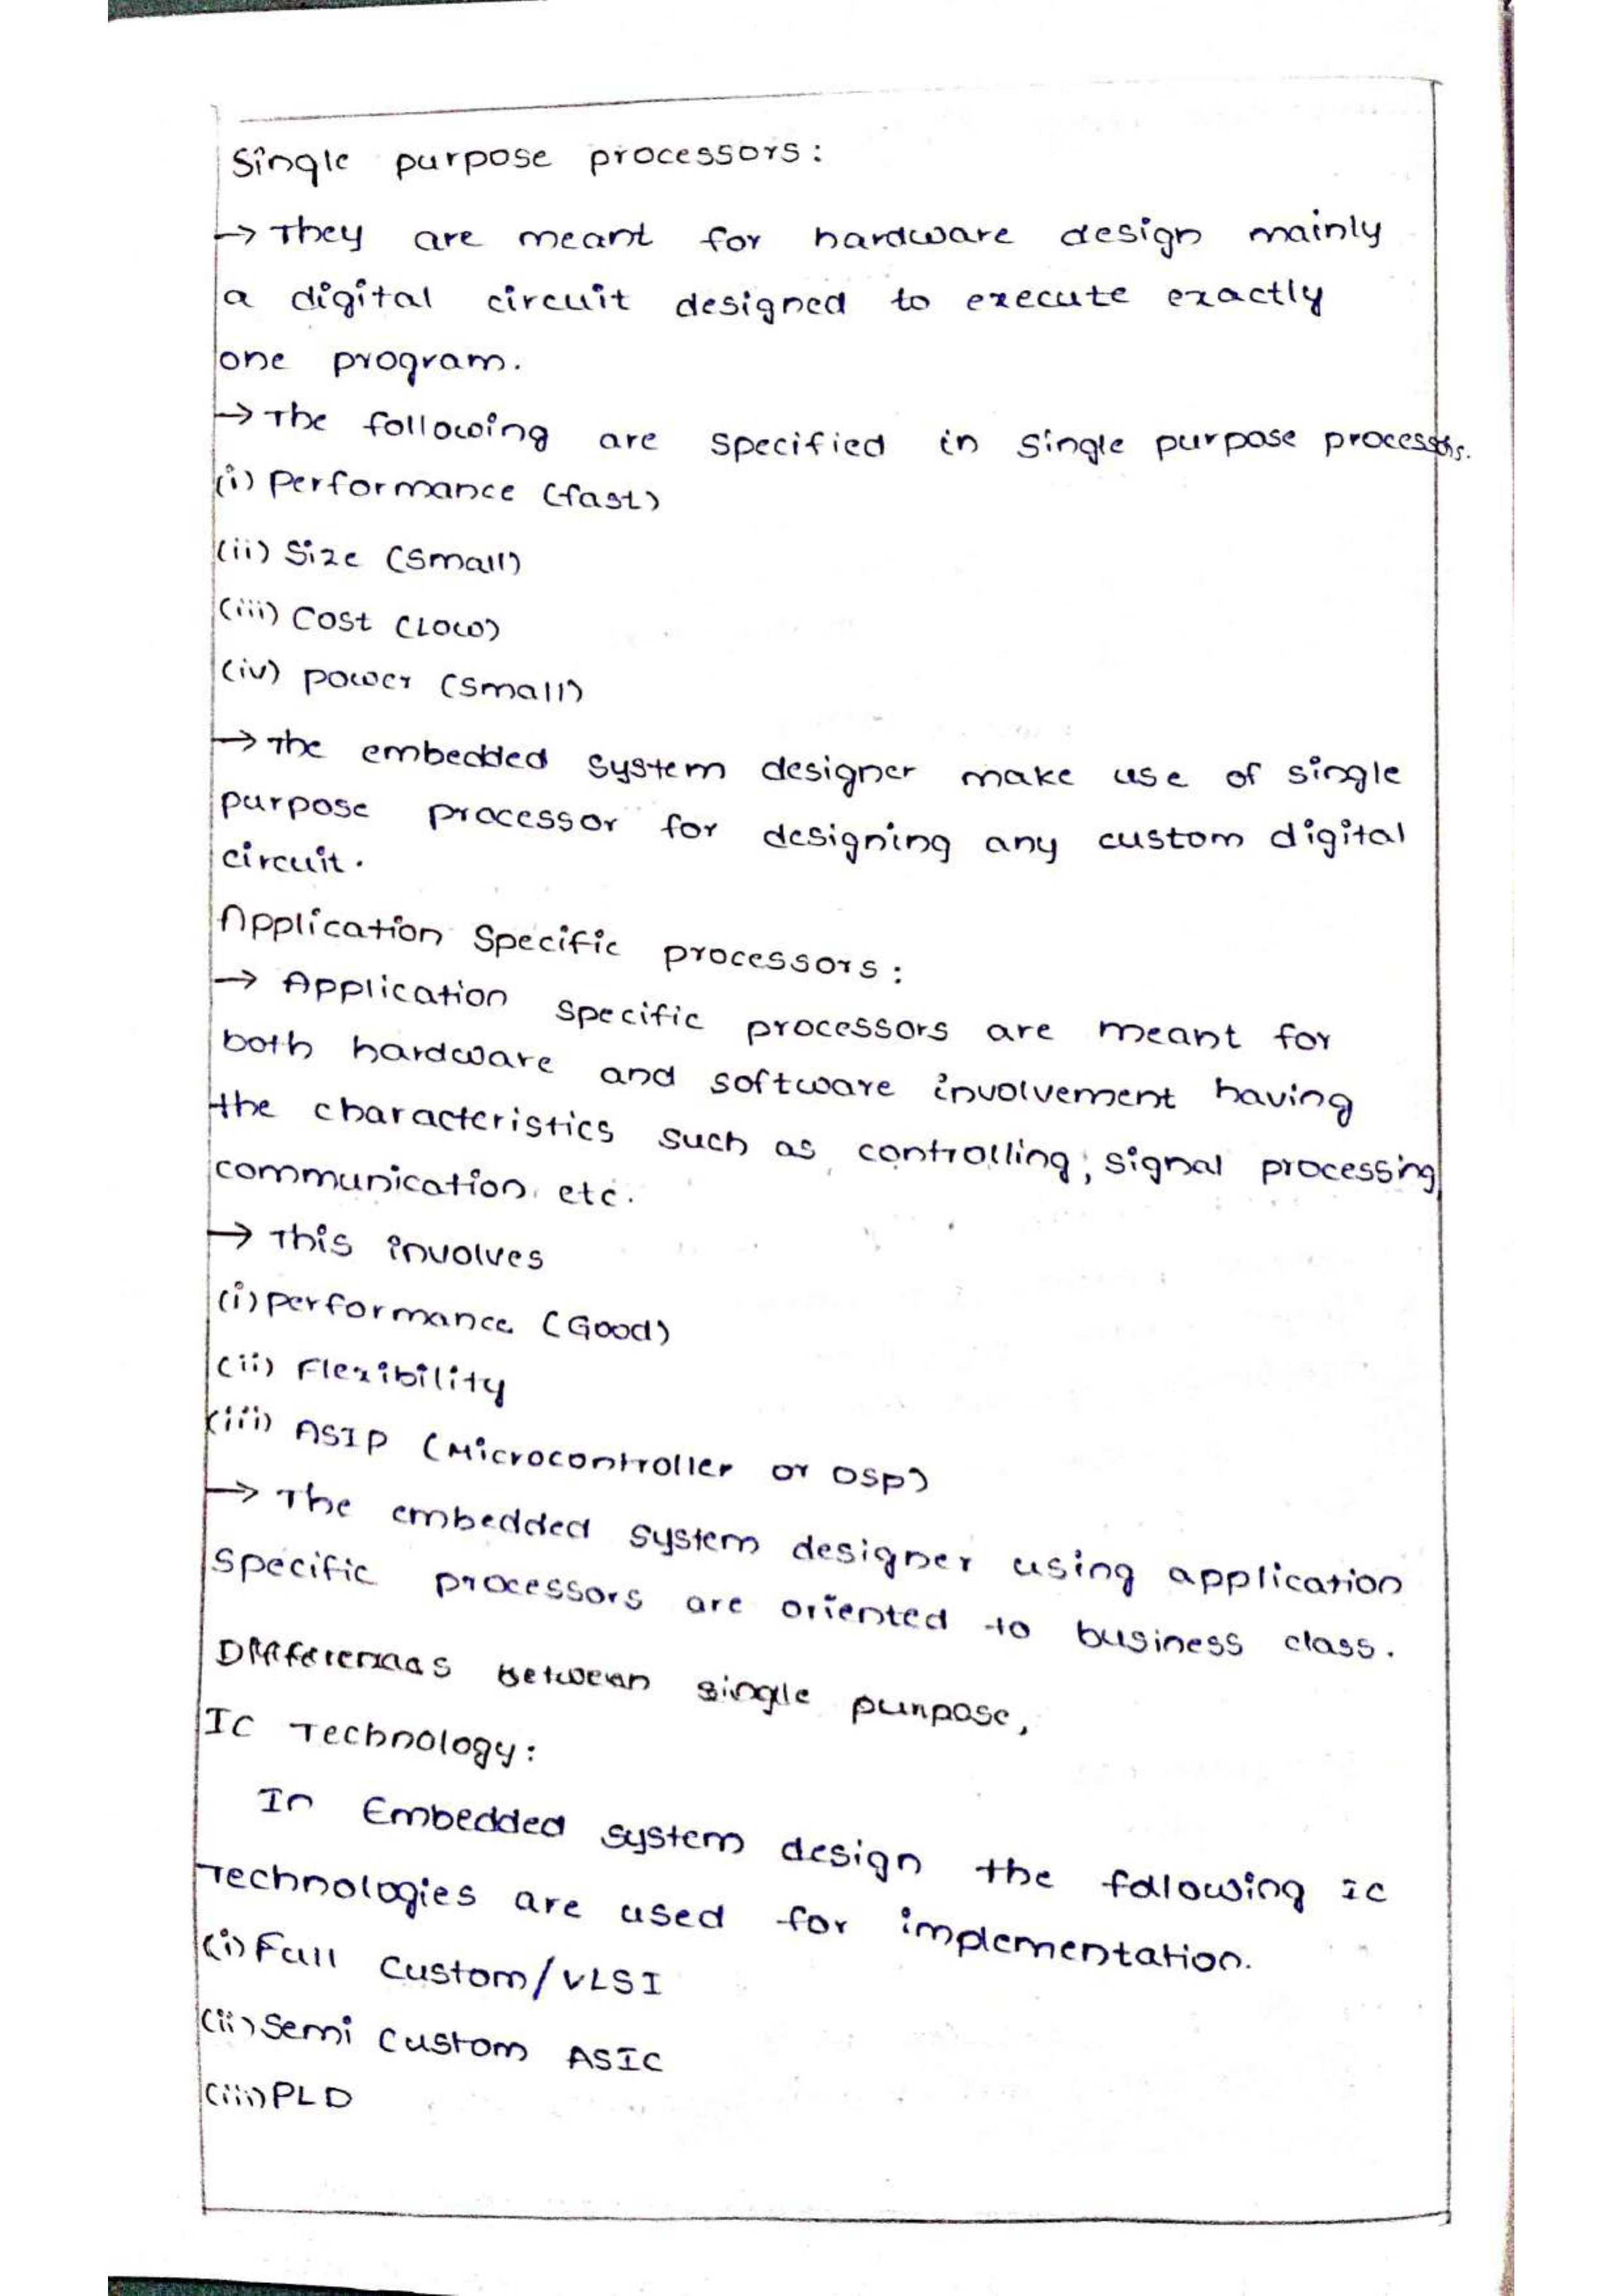 Single purpose processors:
→ They are meant for hardware design mainly
a digital circuit designed to execute exactly
one program.
→ The following are specified in single purpose processors.
(i) Performance (fast)
(ii) Size (Small)
(iii) Cost (Low)
(iv) power (small)
→ The embedded system designer make use of single
purpose processor for designing any custom digital
circuit.
Application Specific processors:
→ Application specific processors are meant for
both hardware and software involvement having
the characteristics such as controlling, signal processing
communication, etc.
→ This involves
(i) performance (Good)
(ii) Flexibility
(iii) ASIP (Microcontroller or DSP)
→ The embedded system designer using application
specific processors are oriented to business class.
Differences between single purpose,
IC Technology:
In Embedded system design the following IC
Technologies are used for implementation.
(i) Full Custom/VLSI
(ii) Semi Custom ASIC
(iii) PLD